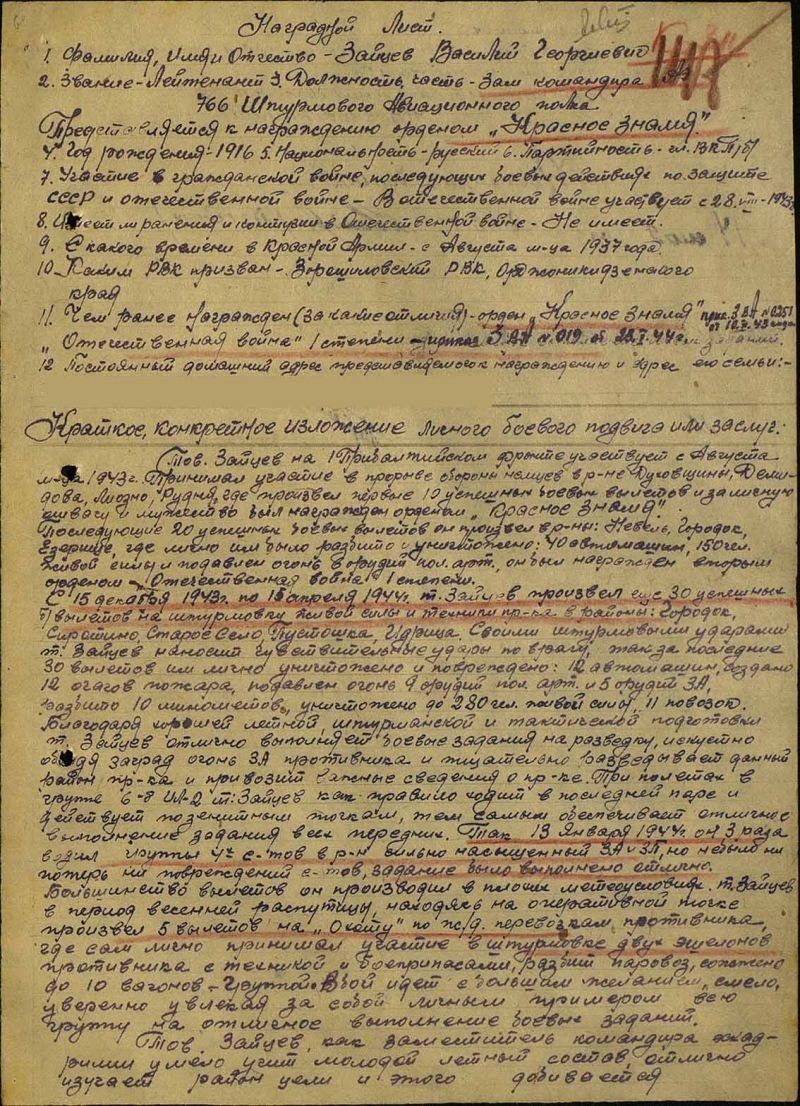 Наградной Лист.
1. Фамилия, Имя и Отчество – Зайцев Василий Георгиевич
2. Звание – Лейтенант 3. Должность, часть – Зам командира АЭ
766 Штурмового Авиационного полка
Представляется к награждению орденом „Красное Знамя"
4. Год рождения – 1916 5. Национальность – русский 6. Партийность – чл. ВКП(б)
7. Участие в гражданской войне, последующих боевых действиях по защите
СССР и отечественной войне – В отечественной войне участвует с 28.VIII-1943г.
8. Имеет ли ранения и контузии в Отечественной войне – Не имеет.
9. С какого времени в Красной Армии – с Августа м-ца 1937 года.
10. Каким РВК призван – Ворошиловский РВК, Орджоникидзевского
края
11. Чем ранее награжден (за какие отличия) – орден „Красное Знамя" прик. 3 ВА № 0251
„Отечественная война" 1 степени – приказ 3 ВА № 019 от 23.I.44г.
12 Постоянный домашний адрес представляемого к награждению и адрес его семьи:-
Краткое, конкретное изложение личного боевого подвига или заслуг:
Тов. Зайцев на 1 Прибалтийском фронте участвует с Августа
м-ца 1943г. Принимал участие в прорыве обороны немцев в р-не Духовщины, Деми-
дова, Лиозно, Рудня, где произвел первые 10 успешных боевых вылетов и за личную
отвагу и мужество был награжден орденом „Красное Знамя".
Последующие 20 успешных боевых вылетов он произвел в р-ны: Невель, Городок,
Езерище, где лично им было разбито и уничтожено: 40 автомашин, 150 чел.
живой силы и подавлен огонь 8 орудий пол. арт. он был награжден вторым
орденом „Отечественная война" 1 степени.
С 15 декабря 1943г. по 15 апреля 1944г. т. Зайцев произвел еще 30 успешных
б/вылетов на штурмовку живой силы и техники пр-ка в районы: Городок,
Сиротино, Старое Село, Пустошка, Идрица. Своими штурмовыми ударами
т. Зайцев наносит чувствительные удары по врагу, так за последние
30 вылетов им лично уничтожено и повреждено: 12 автомашин, создано
12 очагов пожара, подавлен огонь 9 орудий пол. арт. и 5 орудий ЗА,
разбито 10 минометов, уничтожено до 280 чел. живой силы, 11 повозок.
Благодаря хорошей летной, штурманской и тактической подготовки
т. Зайцев отлично выполняет боевые задания на разведку, искустно
обходя заград огонь ЗА противника и тщательно разведывает данный
район пр-ка и привозит ценные сведения о пр-ке. При полетах в
группе 6-8 ИЛ-2 т. Зайцев как правило ходит в последней паре и
действует по зенитным точкам, тем самым обеспечивает отличное
выполнение задания всех передних. Так 13 Января 1944г. он 3 раза
водил группы 4х с-тов в р-н сильно насыщенный ЗА и ЗП, но не было ни
потерь ни повреждений с-тов, задание было выполнено отлично.
Большинство вылетов он производил в плохих метеоусловиях. т. Зайцев
в период весенней распутицы, находясь на оперативной точке
произвел 5 вылетов на „Охоту" по ж/д. перевозкам противника,
где сам лично принимал участие в штурмовке двух эшелонов
противника с техникой и боеприпасами, разбит паровоз, сожжено
до 10 вагонов. В бой идет с большим желанием, смело,
уверенно увлекая за собой личным примером всю
группу на отличное выполнение боевых заданий.
Тов. Зайцев, как заместитель командира эскад-
рильи умело учит молодой летный состав, отлично
изучает район цели и этого добивается